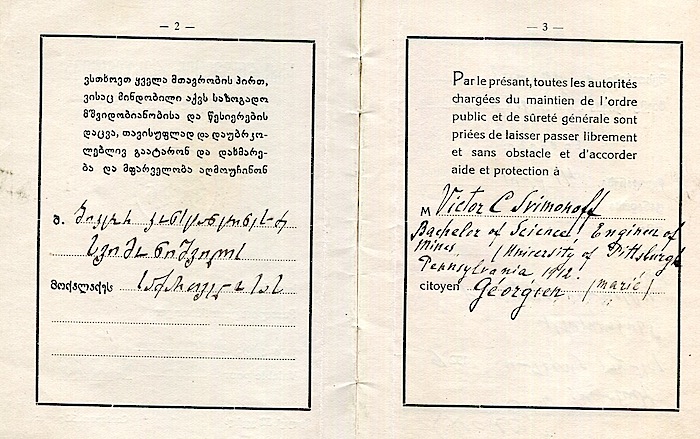 — 2 —
ვსთხოვთ ყველა მთავრობის პირთ,
ვისაც მინდობილი აქვს საზოგადო
მშვიდობიანობისა და წესიერების
დაცვა, თავისუფლად და დაუბრკო-
ლებლივ გაატარონ და დახმარე-
ბა და მფარველობა აღმოუჩინონ
მოქალაქეს საქართველოსას
— 3 —
Par le présant, toutes les autorités
chargées du maintien de l'ordre
public et de sûreté générale sont
priées de laisser passer librement
et sans obstacle et d'accorder
aide et protection à
M Victor C Svimonoff
Bachelor of Science, Engineer of
Mines, (University of Pittsburgh
Pennsylvania 1912.
citoyen Géorgien (marié)